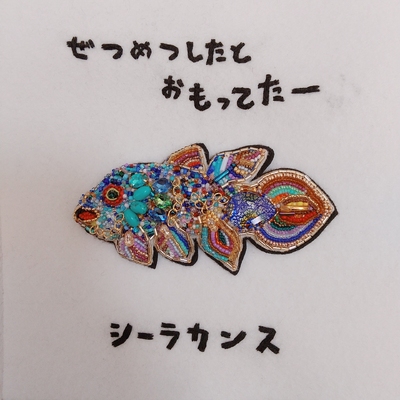 ぜつめつしたと
おもってたー
シーラカンス